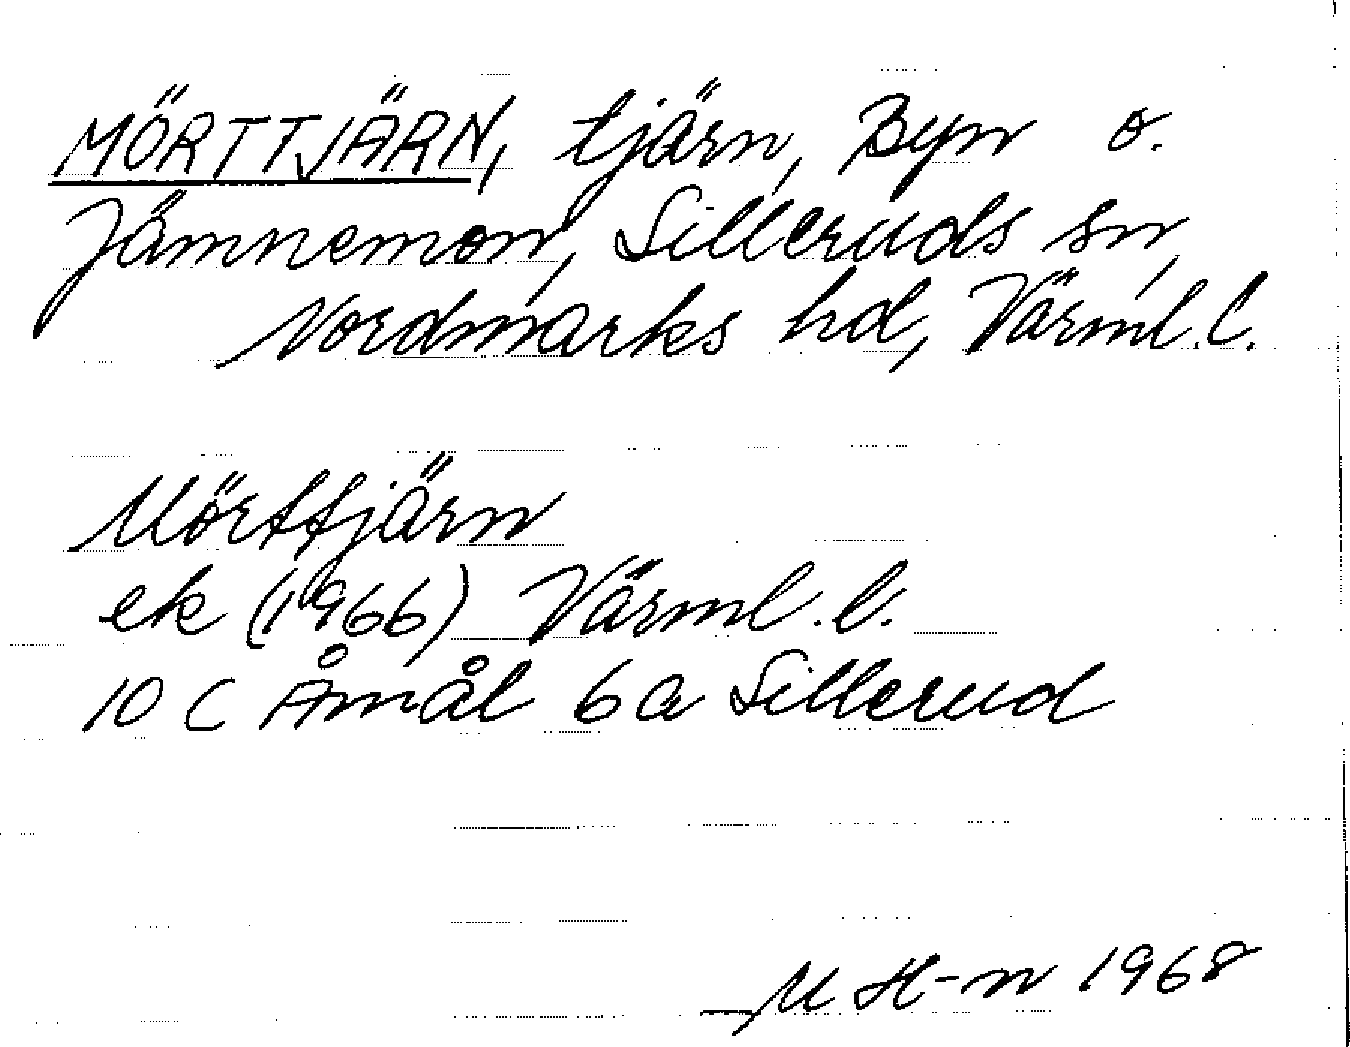 MÖRTTJÄRN, tjärn, Byn o.
Jämnemon, Silleruds sn,
Nordmarks hd, Värml. l.
Mörttjärn
ek (1966) Värml. l.
10 C Åmål 6a Sillerud
M H-n 1968